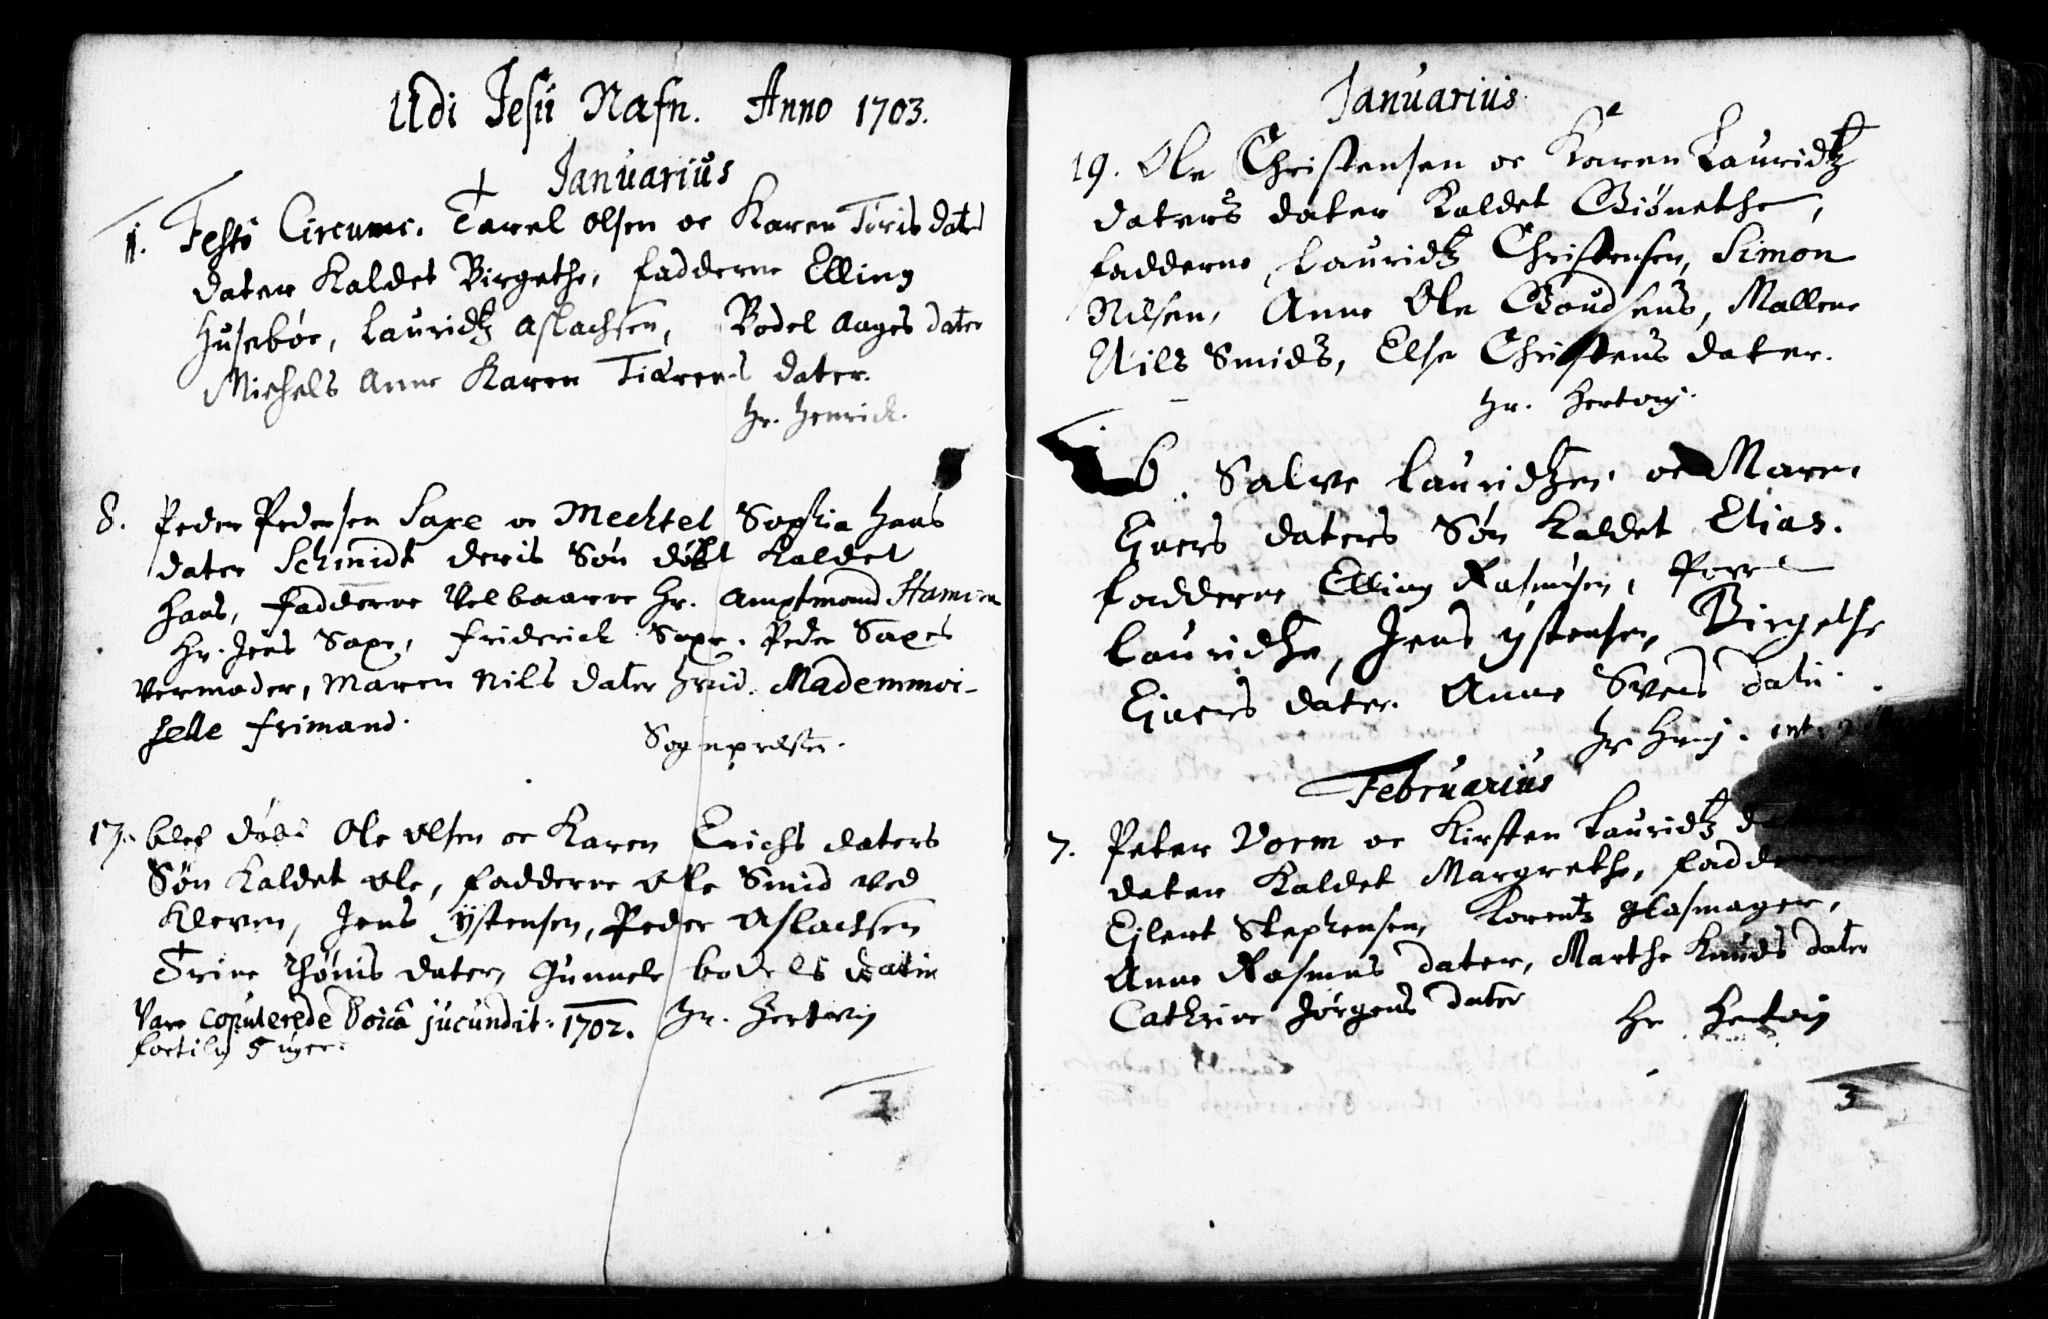 Udi Jesu Nafn. Anno 1703.
Januarius
1. Festo Circumc. Tarel Olsen oc Karen Toris dater
dater Kaldet Birgethe, fadderne Elling
Husebøe, Lauridtz Aslachsen, Bodel Aages dater
Michels Anne Karen dater.
Hr. Henrick.
8. Peder Pedersen Saxe oc Mechtel Sophia Haas
dater Schmidt deris Søn døbt Kaldet
Haas, Fadderne Velbaarne Hr. Amptmand
Hr. Jens Saxe, Friderich Saxe, Peder Saxes
Vermoder, Maren Nils dater Hvid. Mademmoi-
selle Frimand.
Sognepræsten.
17. blef døbt Ole Olsen oc Karen Erichs daters
Søn Kaldet Ole, fadderne Ole Smid ved
Kleven, Jens Ystensen, Peder Aslachsen
Trine Thønis dater, Gunnele bodels datter
Vare copulerede Doica jucundit: 1702. Hr. Hertvig
fortilig 5 uger.
2
Januarius
19. Ole Christensen oc Karen Lauridtz
daters dater Kaldet Giønethe,
fadderne Lauridtz Christensen, Simon
Nilsen, Anne Ole Goudsens, Mallene
Nils Smids, Else Christens dater.
Hr. Hertvig.
6. Salve Lauridtzen oc Maren
Ejvers daters Søn Kaldet Elias.
fadderne Elling Rasmusen, Povel
Lauridtzen, Jens Ystensen, Birgethe
Ejvers dater. Anne Svens dater.
Hr
Februarius
7. Peter Vorm oc Kirsten Lauridtz
dater Kaldet Margrethe, fadderne
Ejlert Stephensen, Lorentz glasmager,
Anne Rasmus dater, Marthe Knuds dater
Cathrine Jørgens dater
Hr Hertvig
3